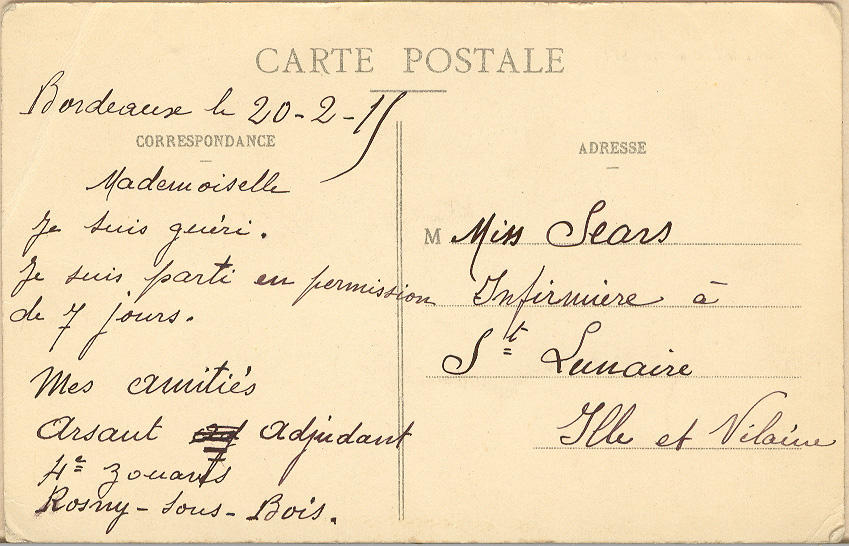 CARTE POSTALE
Bordeaux le 20-2-15
CORRESPONDANCE
Mademoiselle
Je suis guéri.
Je suis parti en permission
de 7 jours.
Mes amitiés
Arsaut Adjudant
4e zouaves
Rosny-sous-Bois.
ADRESSE
M Miss Sears
Infirmière à
St Lunaire
Ille et Vilaine